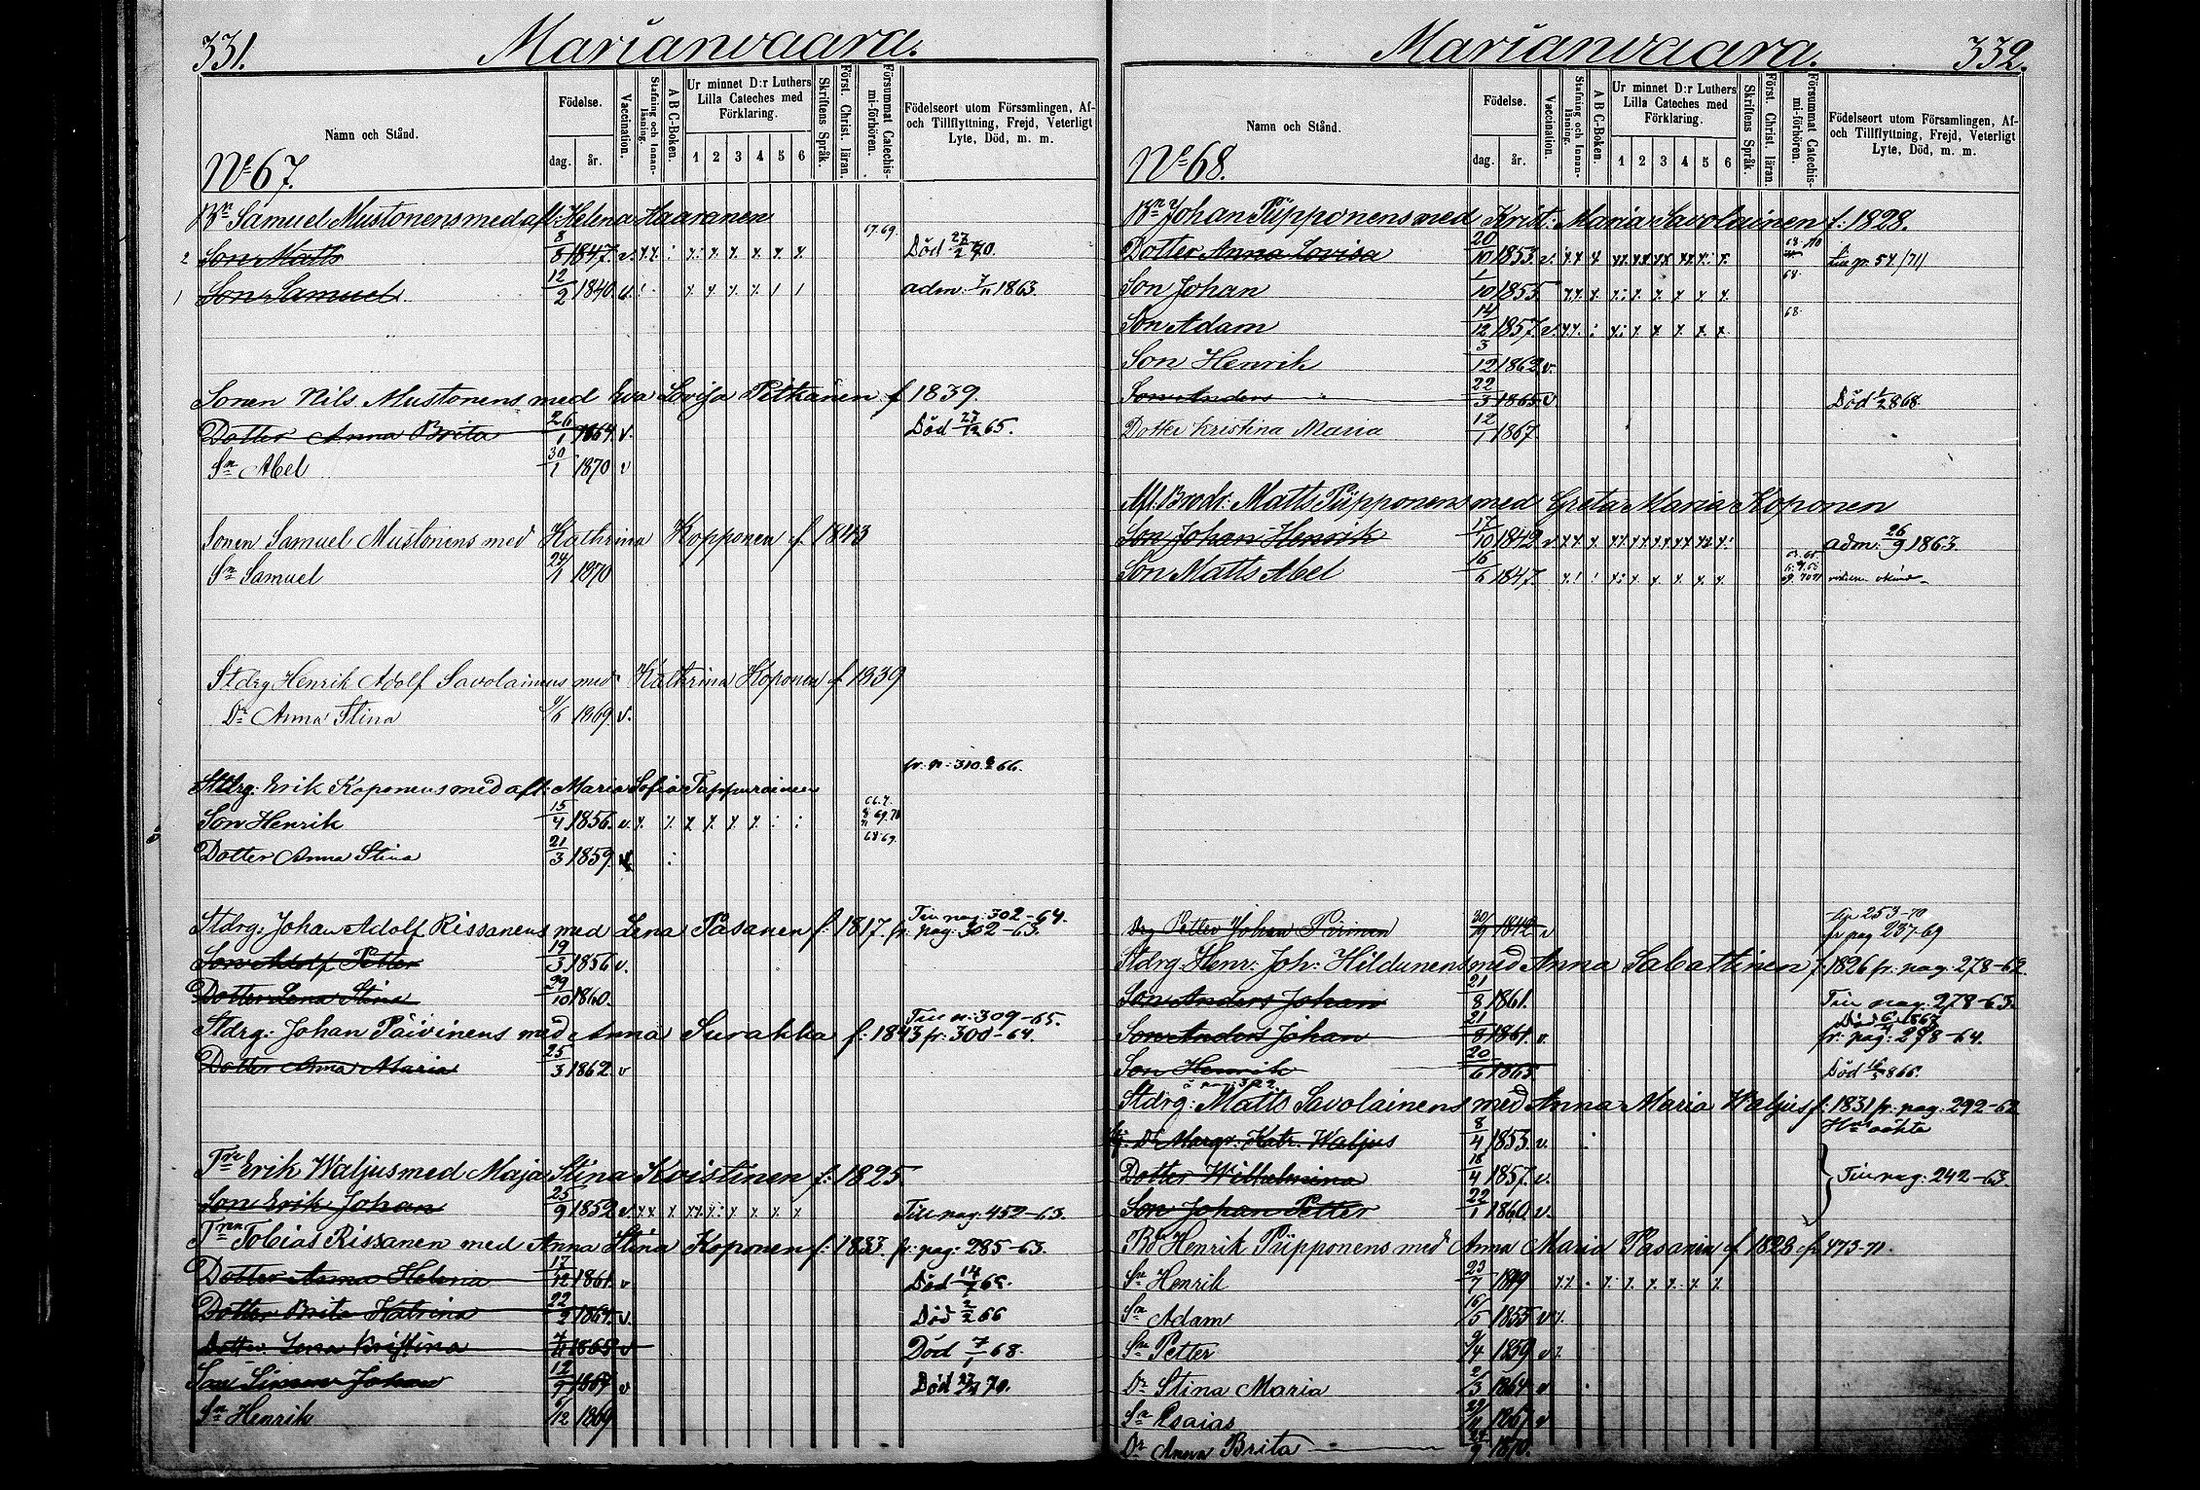 331. Marianvaara.
Namn och Stånd.
Födelse.
dag. år.
Vaccination.
Stafning och Innan-läsning.
A B C-Boken.
Ur minnet D:r Luthers Lilla Cateches med Förklaring.
1 2 3 4 5 6
Skriftens Språk.
Först. Christ. läran.
Försummat Catechis-mi-förhören.
Födelseort utom Församlingen, Af- och Tillflyttning, Frejd, Veterligt Lyte, Död, m. m.
No 67.
Bn Samuel Mustonens med afl: Helena Haaranen
2 Son Matts 8/8 1847. v. Död 27/2 70.
1 Son Samuel 12/2 1840 v. adm. 7/11 1863.
Sonen Nils Mustonens med Eva Lovisa Pitkänen f 1839.
Dotter Anna Brita 26/1 1864 v. Död 27/12 65.
Sn Abel 30/1 1870 v
Sonen Samuel Mustonens med Kathrina Kopponen f. 1843
Sn Samuel 24/1 1870
Stdrg Henrik Adolf Savolainens med Kathrina Koponen f 1839
Dr Anna Stina 9/6 1869 v.
fr. p: 310 66.
Stdrg: Erik Koponens med afl: Maria Sofia Tappurainen
Son Henrik 15/4 1856. v.
Dotter Anna Stina 21/3 1859. v 68.69.
Till pag: 302-64.
Stdrg: Johan Adolf Rissanens med Lena Pasanen f: 1817. fr. pag: 302-63.
Son Adolf Petter 19/3 1856 v.
Dotter Lena Stina 29/10 1860.
Till p: 309-65.
Stdrg: Johan Päivinens med Anna Surakka f: 1843 fr: 300-64.
Dotter Anna Maria 25/3 1862. v
Tre Erik Waljus med Maja Stina Koistinen f: 1825.
Son Erik Johan 25/9 1852 v. Till pag: 452-63.
Trn Tobias Rissanen med Anna Stina Koponen f: 1833. fr. pag: 285-63.
Dotter Anna Helena 17/12 1861. v Död 14/7 65.
Dotter Brita Katrina 22/2 1864. v. Död 2/2 66
Dotter Lena Kristina 7/11 1865 v Död 7/1 68.
Son Simon Johan 12/9 1867 v Död 27/11 70.
Sn Henrik 6/12 1869
Marianvaara. 332.
Namn och Stånd.
Födelse.
dag. år.
Vaccination.
Stafning och Innan-läsning.
A B C-Boken.
Ur minnet D:r Luthers Lilla Cateches med Förklaring.
1 2 3 4 5 6
Skriftens Språk.
Först. Christ. läran.
Försummat Catechis-mi-förhören.
Födelseort utom Församlingen, Af- och Tillflyttning, Frejd, Veterligt Lyte, Död, m. m.
No 68.
Bn Johan Piipponens med Krist: Maria Savolainen f: 1828.
Dotter Anna Lovisa 20/10 1853 v. 54/71
Son Johan 1/10 1855 68.
Son Adam 14/12 1857. v. 68.
Son Henrik 3/12 1862 v.
Son Anders 22/3 1865 v. Död 1/2 868.
Dotter Kristina Maria 12/1 1867
Afl. Brodr: Matts Piipponens med Greta Maria Koponen
Son Johan Henrik 17/10 1842 v adm: 26/9 1863.
Son Matts Abel 16/6 1847.
Drg Petter Johan Piirinen 30/9 1842 v fr pag 237-69
Stdrg: Henr: Joh: Hildunens med Anna Sabattinen f: 1826 fr: pag: 278-62.
Son Anders Johan 21/8 1861. Till pag: 278-63.
Son Anders Johan 21/8 1861. v. fr: pag: 278-64.
Son Henrik 20/6 1865. Död 16/5 866.
Stdrg: Matts Savolainens med Anna Maria Waljus f: 1831 fr: pag: 292-62
Dr Margr. Katr. Waljus 8/4 1853. v. Hns oäkta
Dotter Wilhelmina 18/4 1857. v. Till pag: 242-63.
Son Johan Petter 22/1 1860 v.
Bo Henrik Piipponens med Anna Maria Pasanen f 1823 fr 473-71.
Sn Henrik 23/7 1849
Sn Adam 16/5 1855 v
Sn Petter 9/4 1859 v
Dr Stina Maria 2/3 1864 v
Sn Esaias 29/11 1867. v
Dr Anna Brita 24/9 1870.